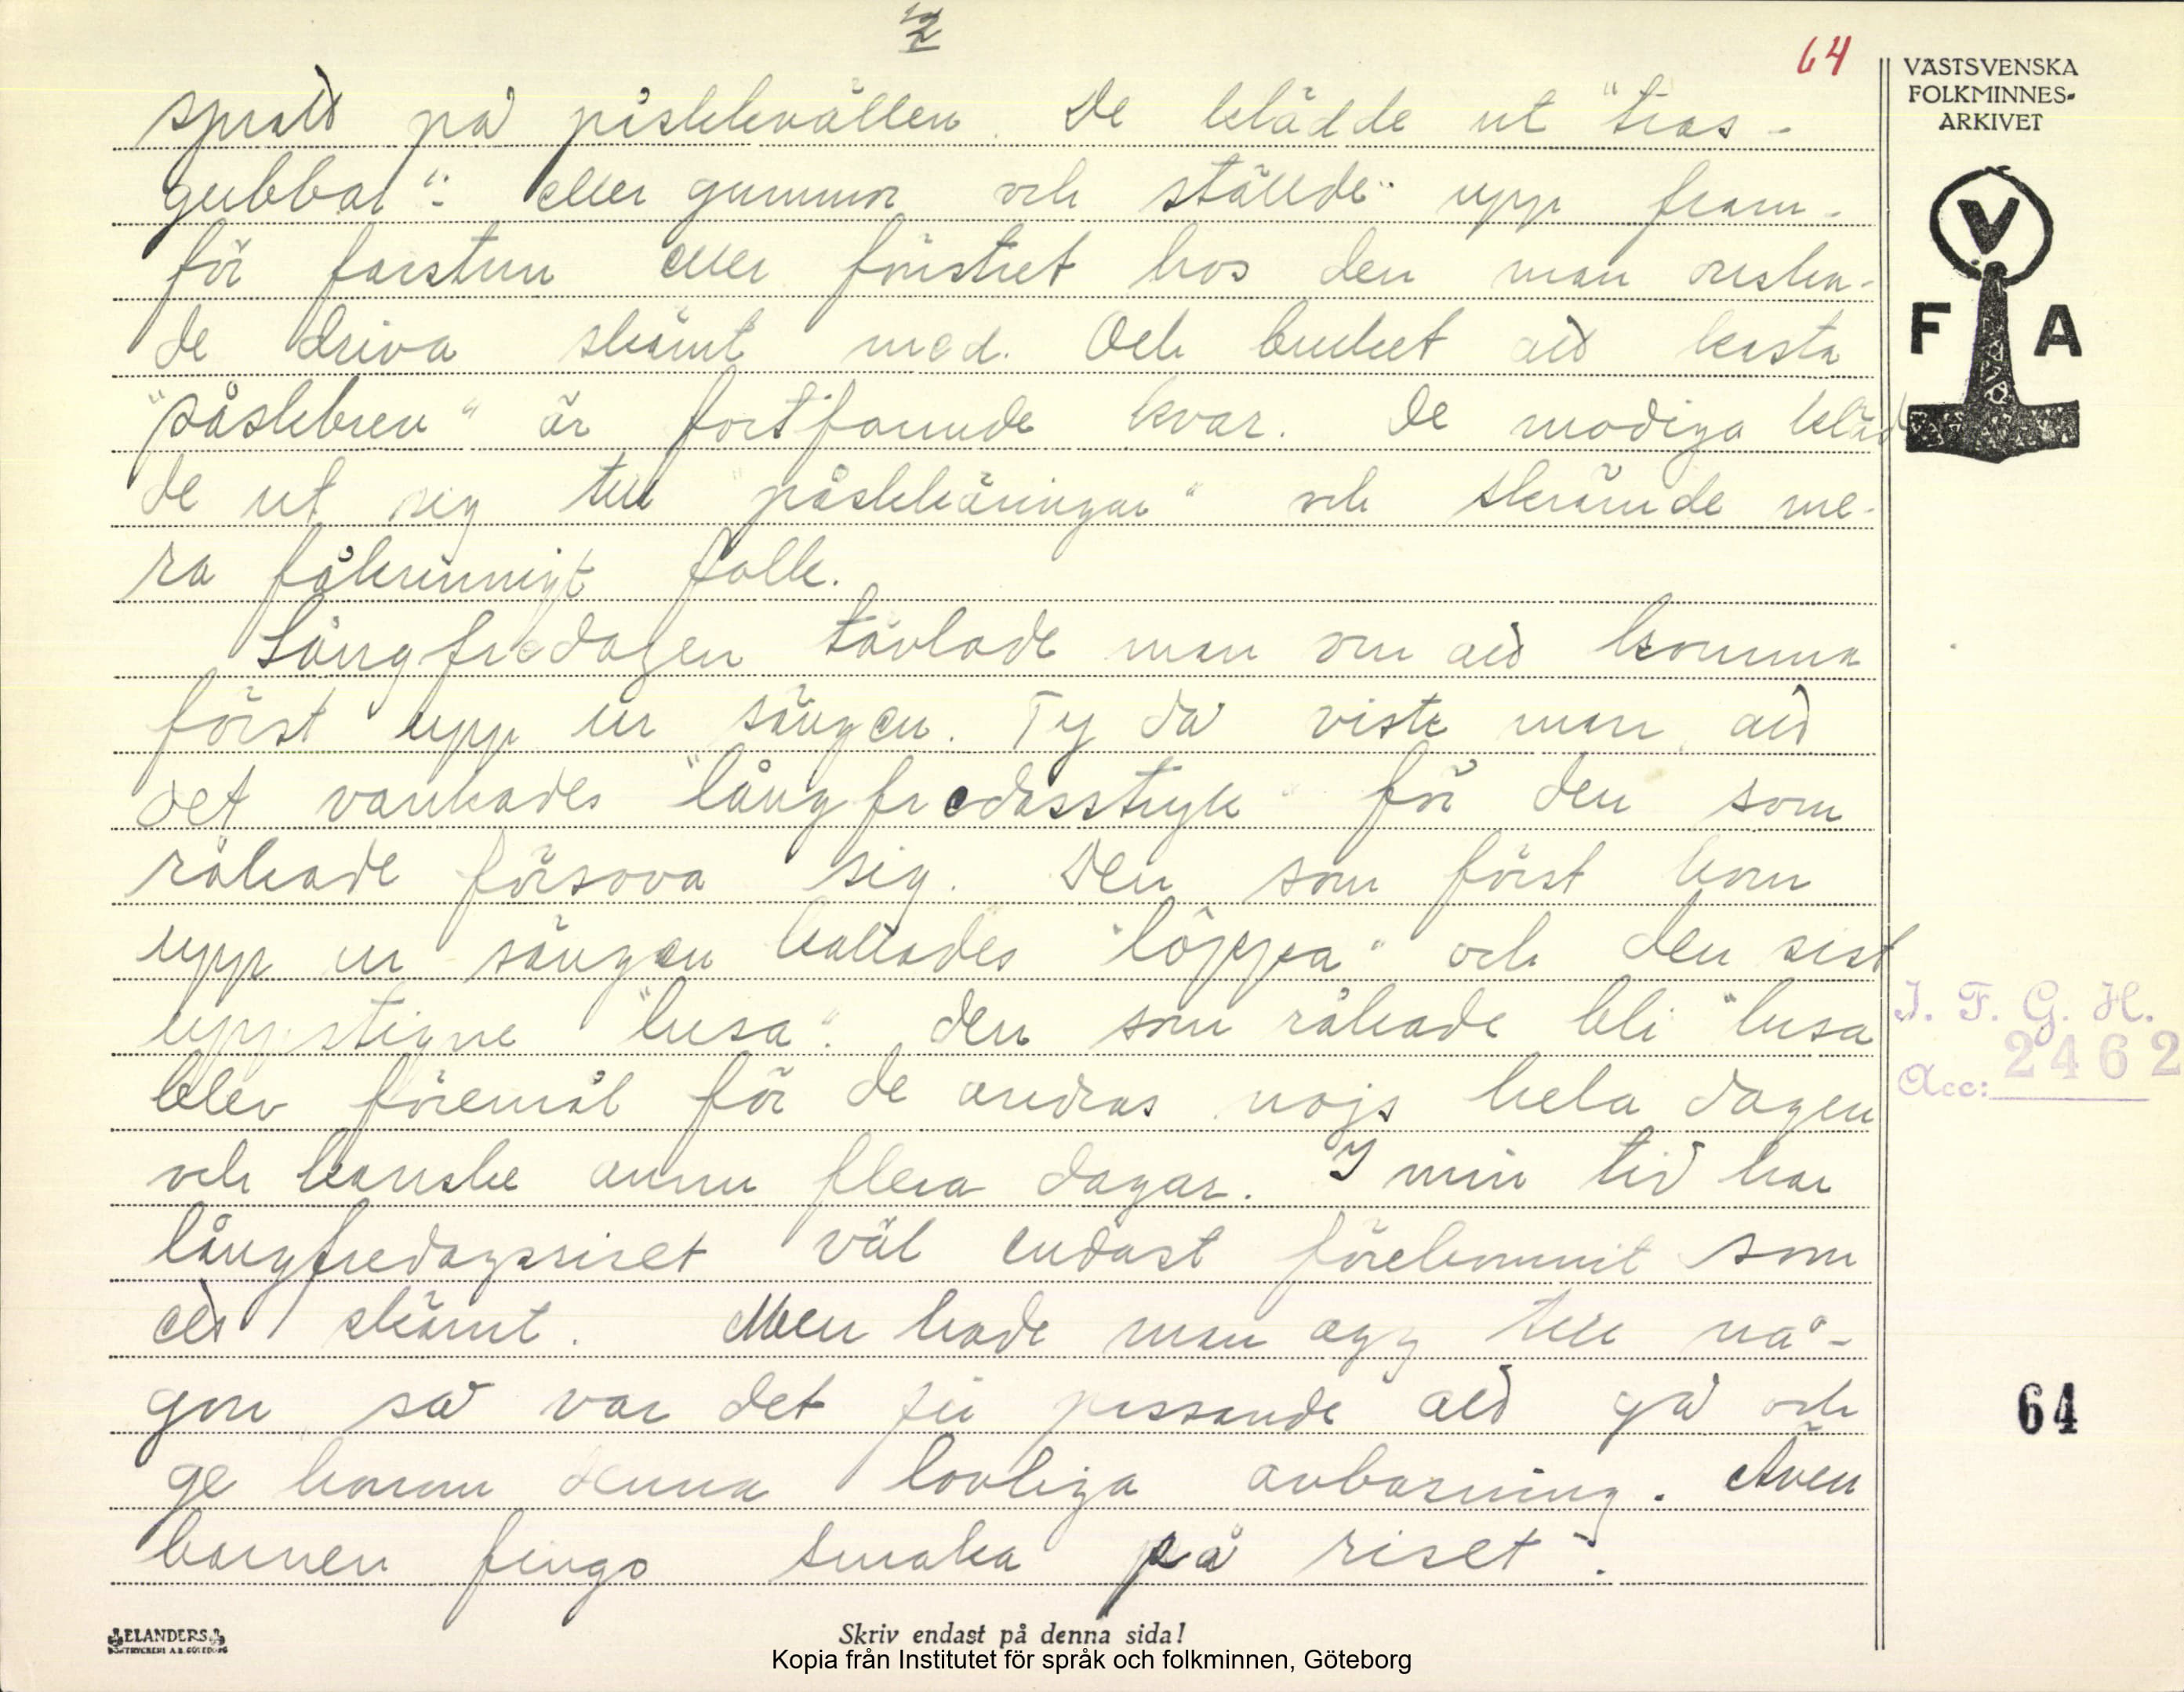 2
64
VÄSTSVENSKA
FOLKMINNES-
ARKIVET
V
F A
spratt på påskkvällen. De klädde ut "tras-
gubbar" eller gummor och ställde upp fram-
för farstun eller fönstret hos den man önska-
de driva skämt med. Och bruket att kasta
"påskbrev" är fortfarande kvar. De modiga kläd
de ut sig till "påskkäringar" och skrämde me-
ra fåkunnigt folk.
Långfredagen tävlade man om att komma
först upp ur sängen. Ty då viste man, att
det vankades "långfredasstryk" för den som
råkade försova sig. Den som först kom
upp ur sängen kallades "löppa" och den sist
uppstigne "lusa". Den som råkade bli "lusa
blev föremål för de andras nojs hela dagen
och kanske ännu flera dagar. I min tid har
långfredagsriset väl endast förekommit som
ett skämt. Men hade man agg till nå-
gon, så var det ju passande att gå och
ge honom denna lovliga avbasning. Även
barnen fingo smaka på riset.
I. F. G. H.
Acc: 2462
64
ELANDERS
Skriv endast på denna sida!
Kopia från Institutet för språk och folkminnen, Göteborg